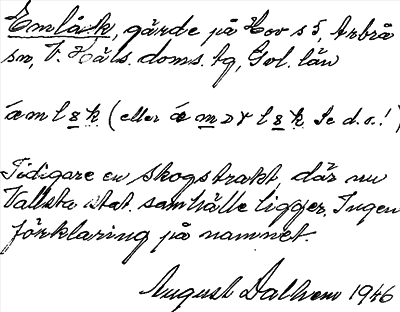 Emlåk, gärde på Hov s 5, Arbrå
sn, V. Häls. doms. tg, Gvl. län
æmlsk (eller æm lsk Se d.o.!)
Tidigare en skogstrakt, där nu
Vallsta stat. samhälle ligger. Ingen
förklaring på namnet.
August Dalhem 1946